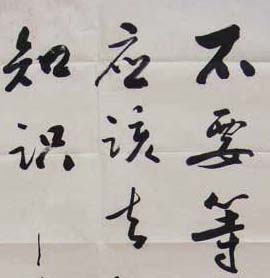 不要等
应该去
知识